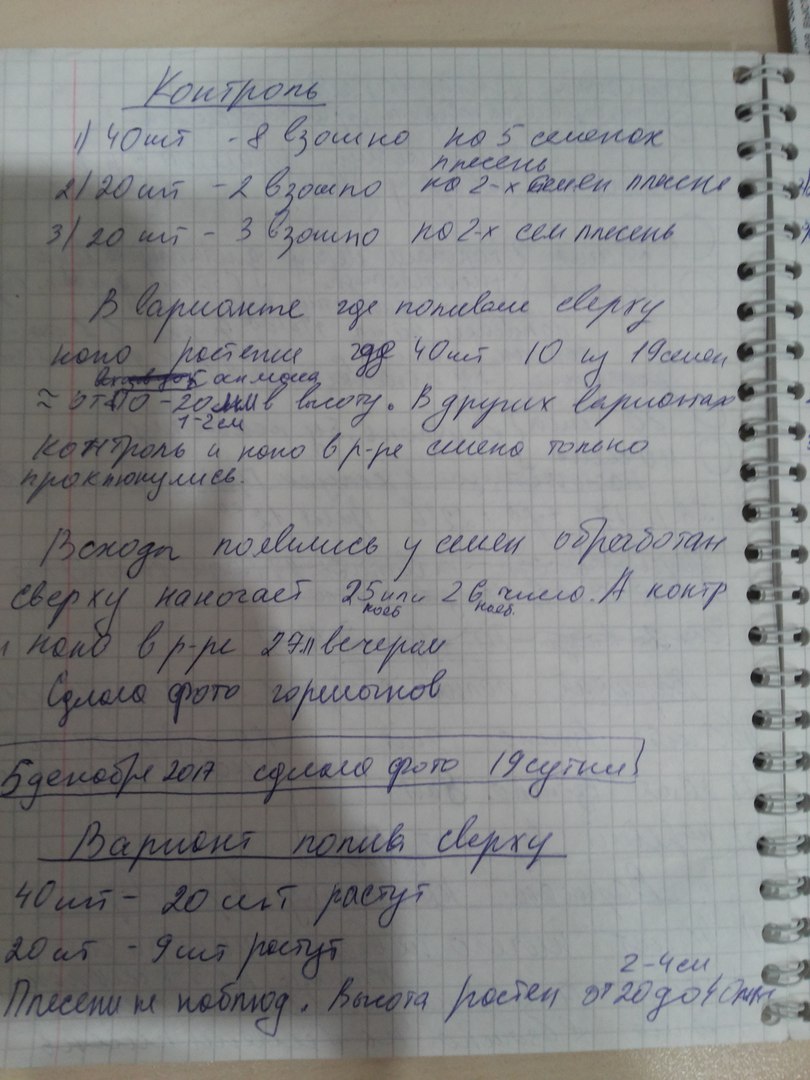 Контроль
1) 40 шт - 8 взошло на 5 семенах
плесень
2) 20 шт - 2 взошло на 2-х семен плесне
3) 20 шт - 3 взошло на 2-х сем плесень
В варианте где поливали сверху
нано растение где 40 шт 10 из 19 семен
≈ от 10 - 20 мм в высоту. В других вариантах
1-2 см
контроль и нано в р-ре семена только
проклюнулись.
Всходы появились у семен обработан
сверху наночаст 25 или 26 число. А контр
нояб нояб.
и нано в р-ре 27 вечером
Сделала фото
5 декабря 2017 сделала фото 19 сутки
Вариант полив сверху
40 шт - 20 шт растут
20 шт - 9 шт растут
2-4 см
Плесени не наблюд. Высота растен от 20 до 40 мм